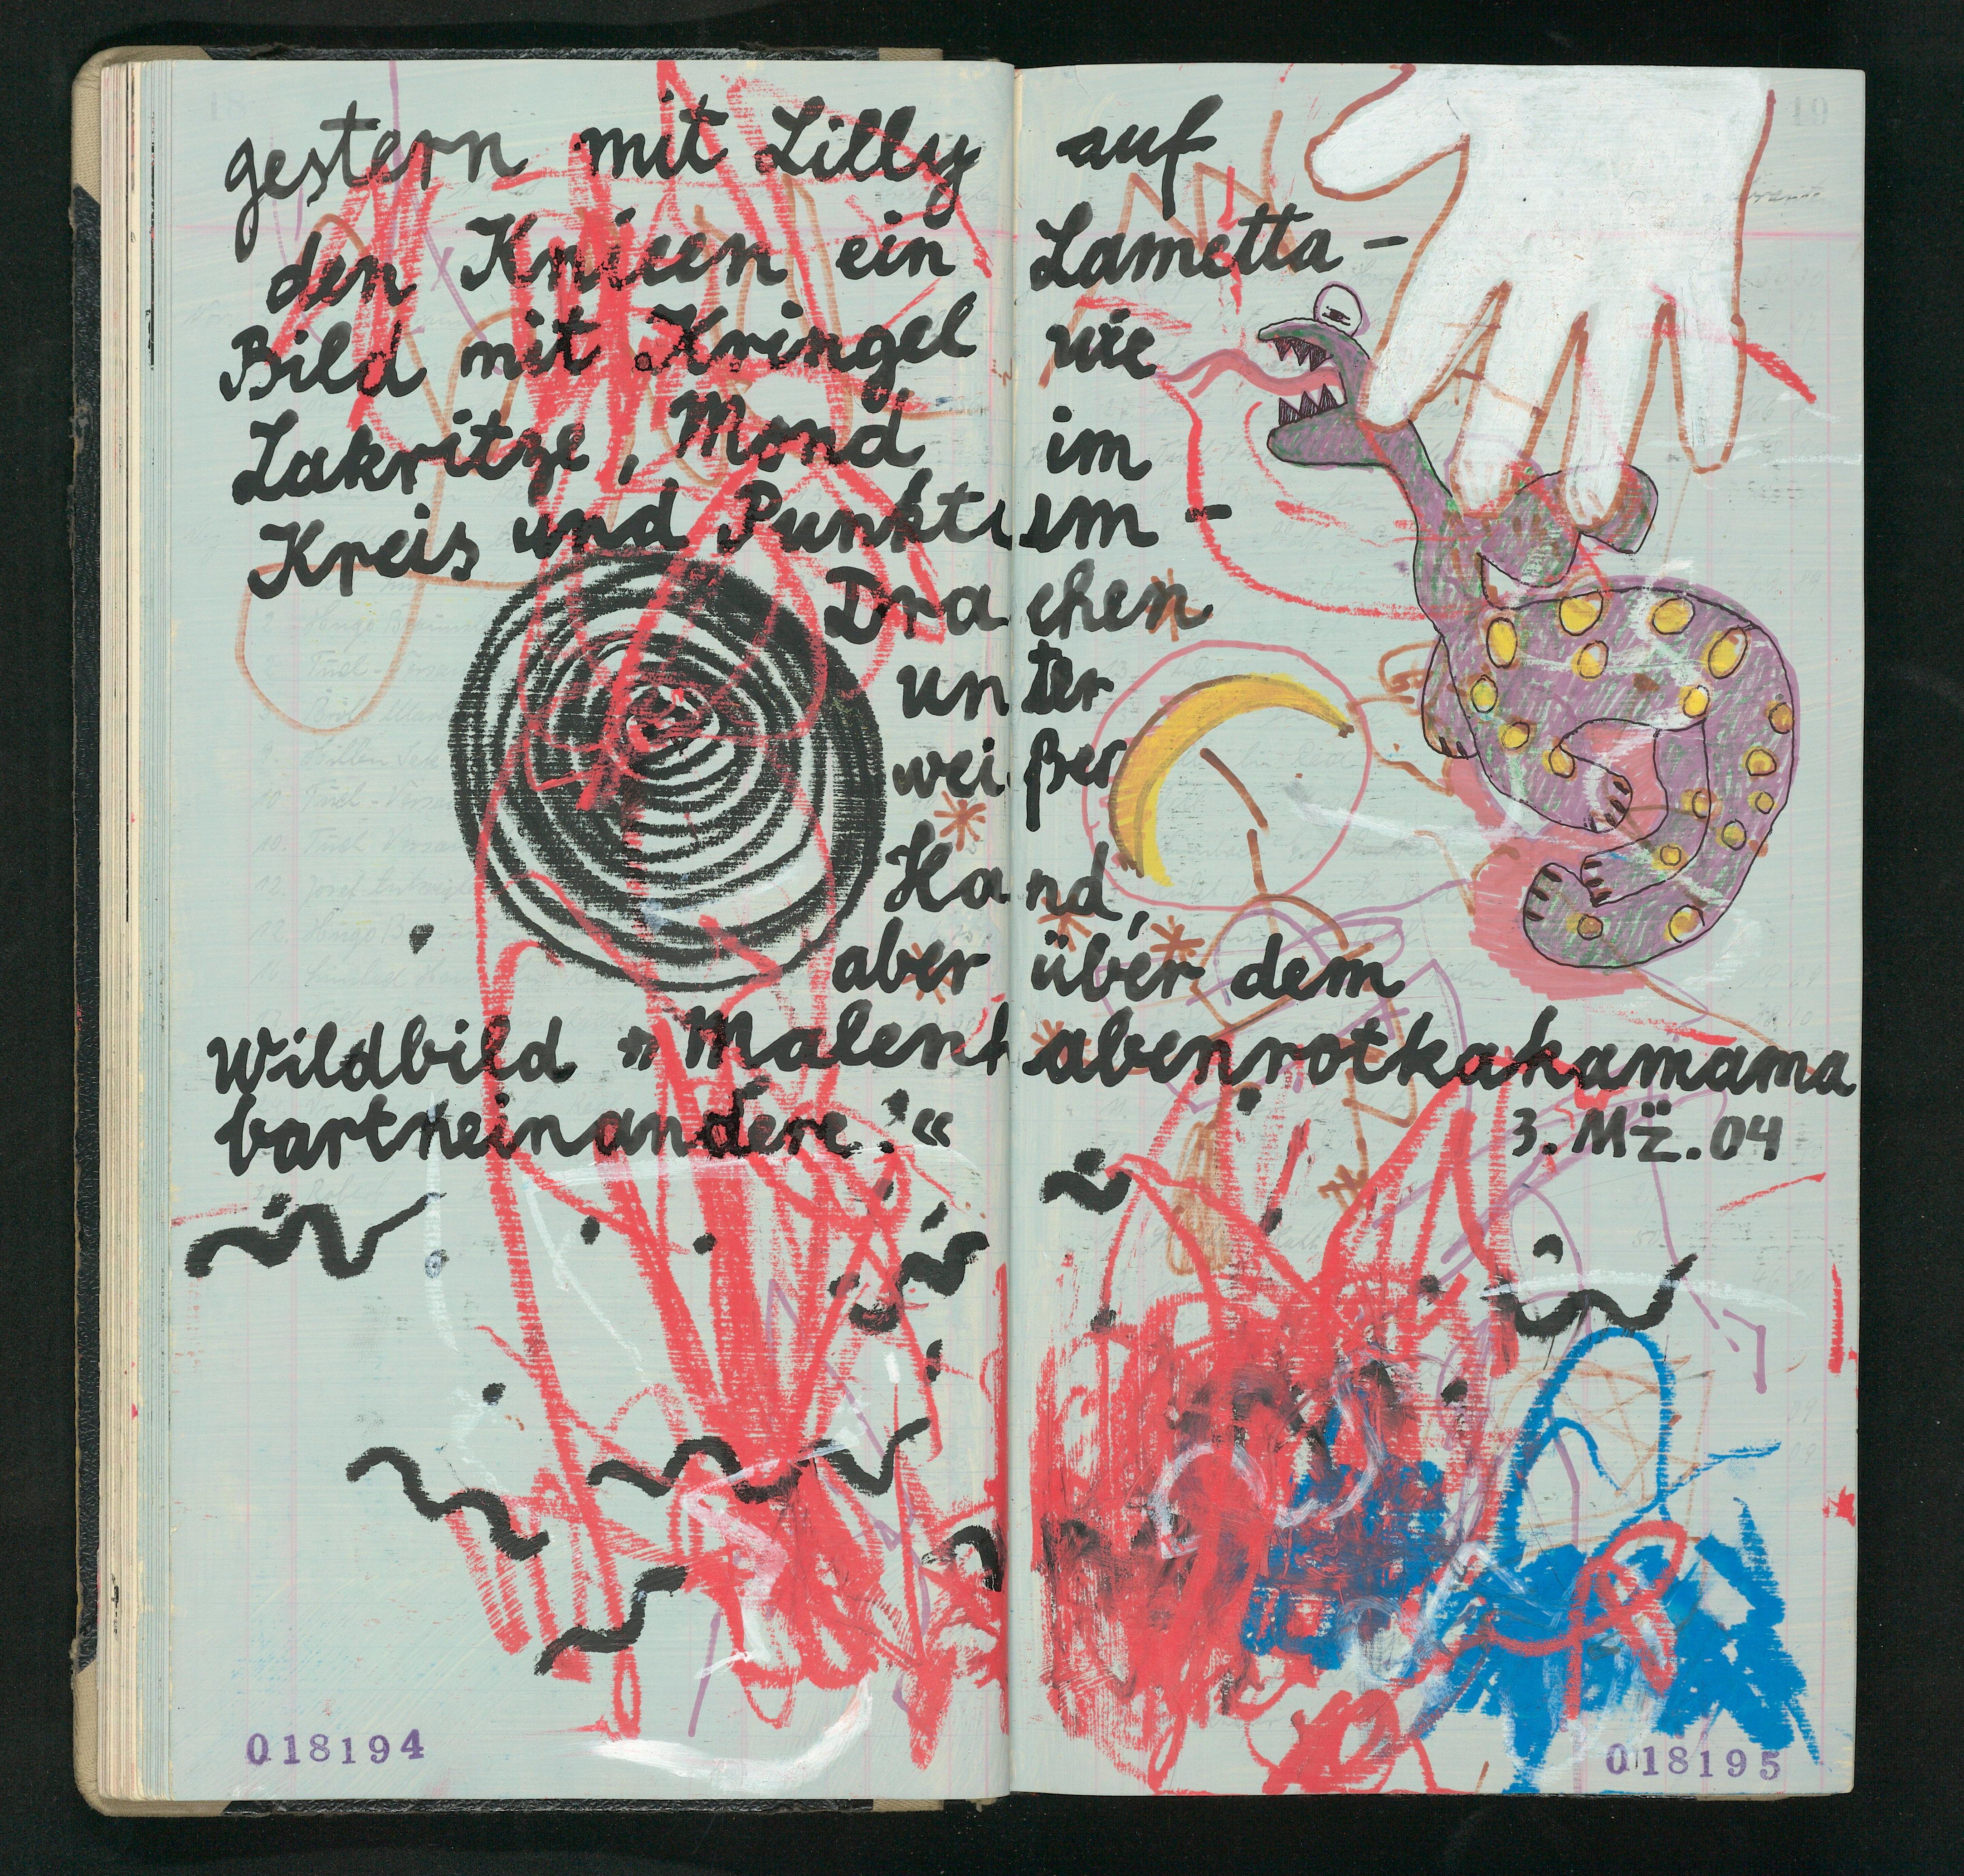 gestern mit Lilly auf
den Knieen ein Lametta-
Bild mit Kringel wie
Lakritze, Mond im
Kreis und Punktism-
Drachen
unter
weißer
Hand,
aber über dem
Wildbild »Malenhabenrotkakamama
bartneinandere!«
3. Mz̈. 04
018194
018195